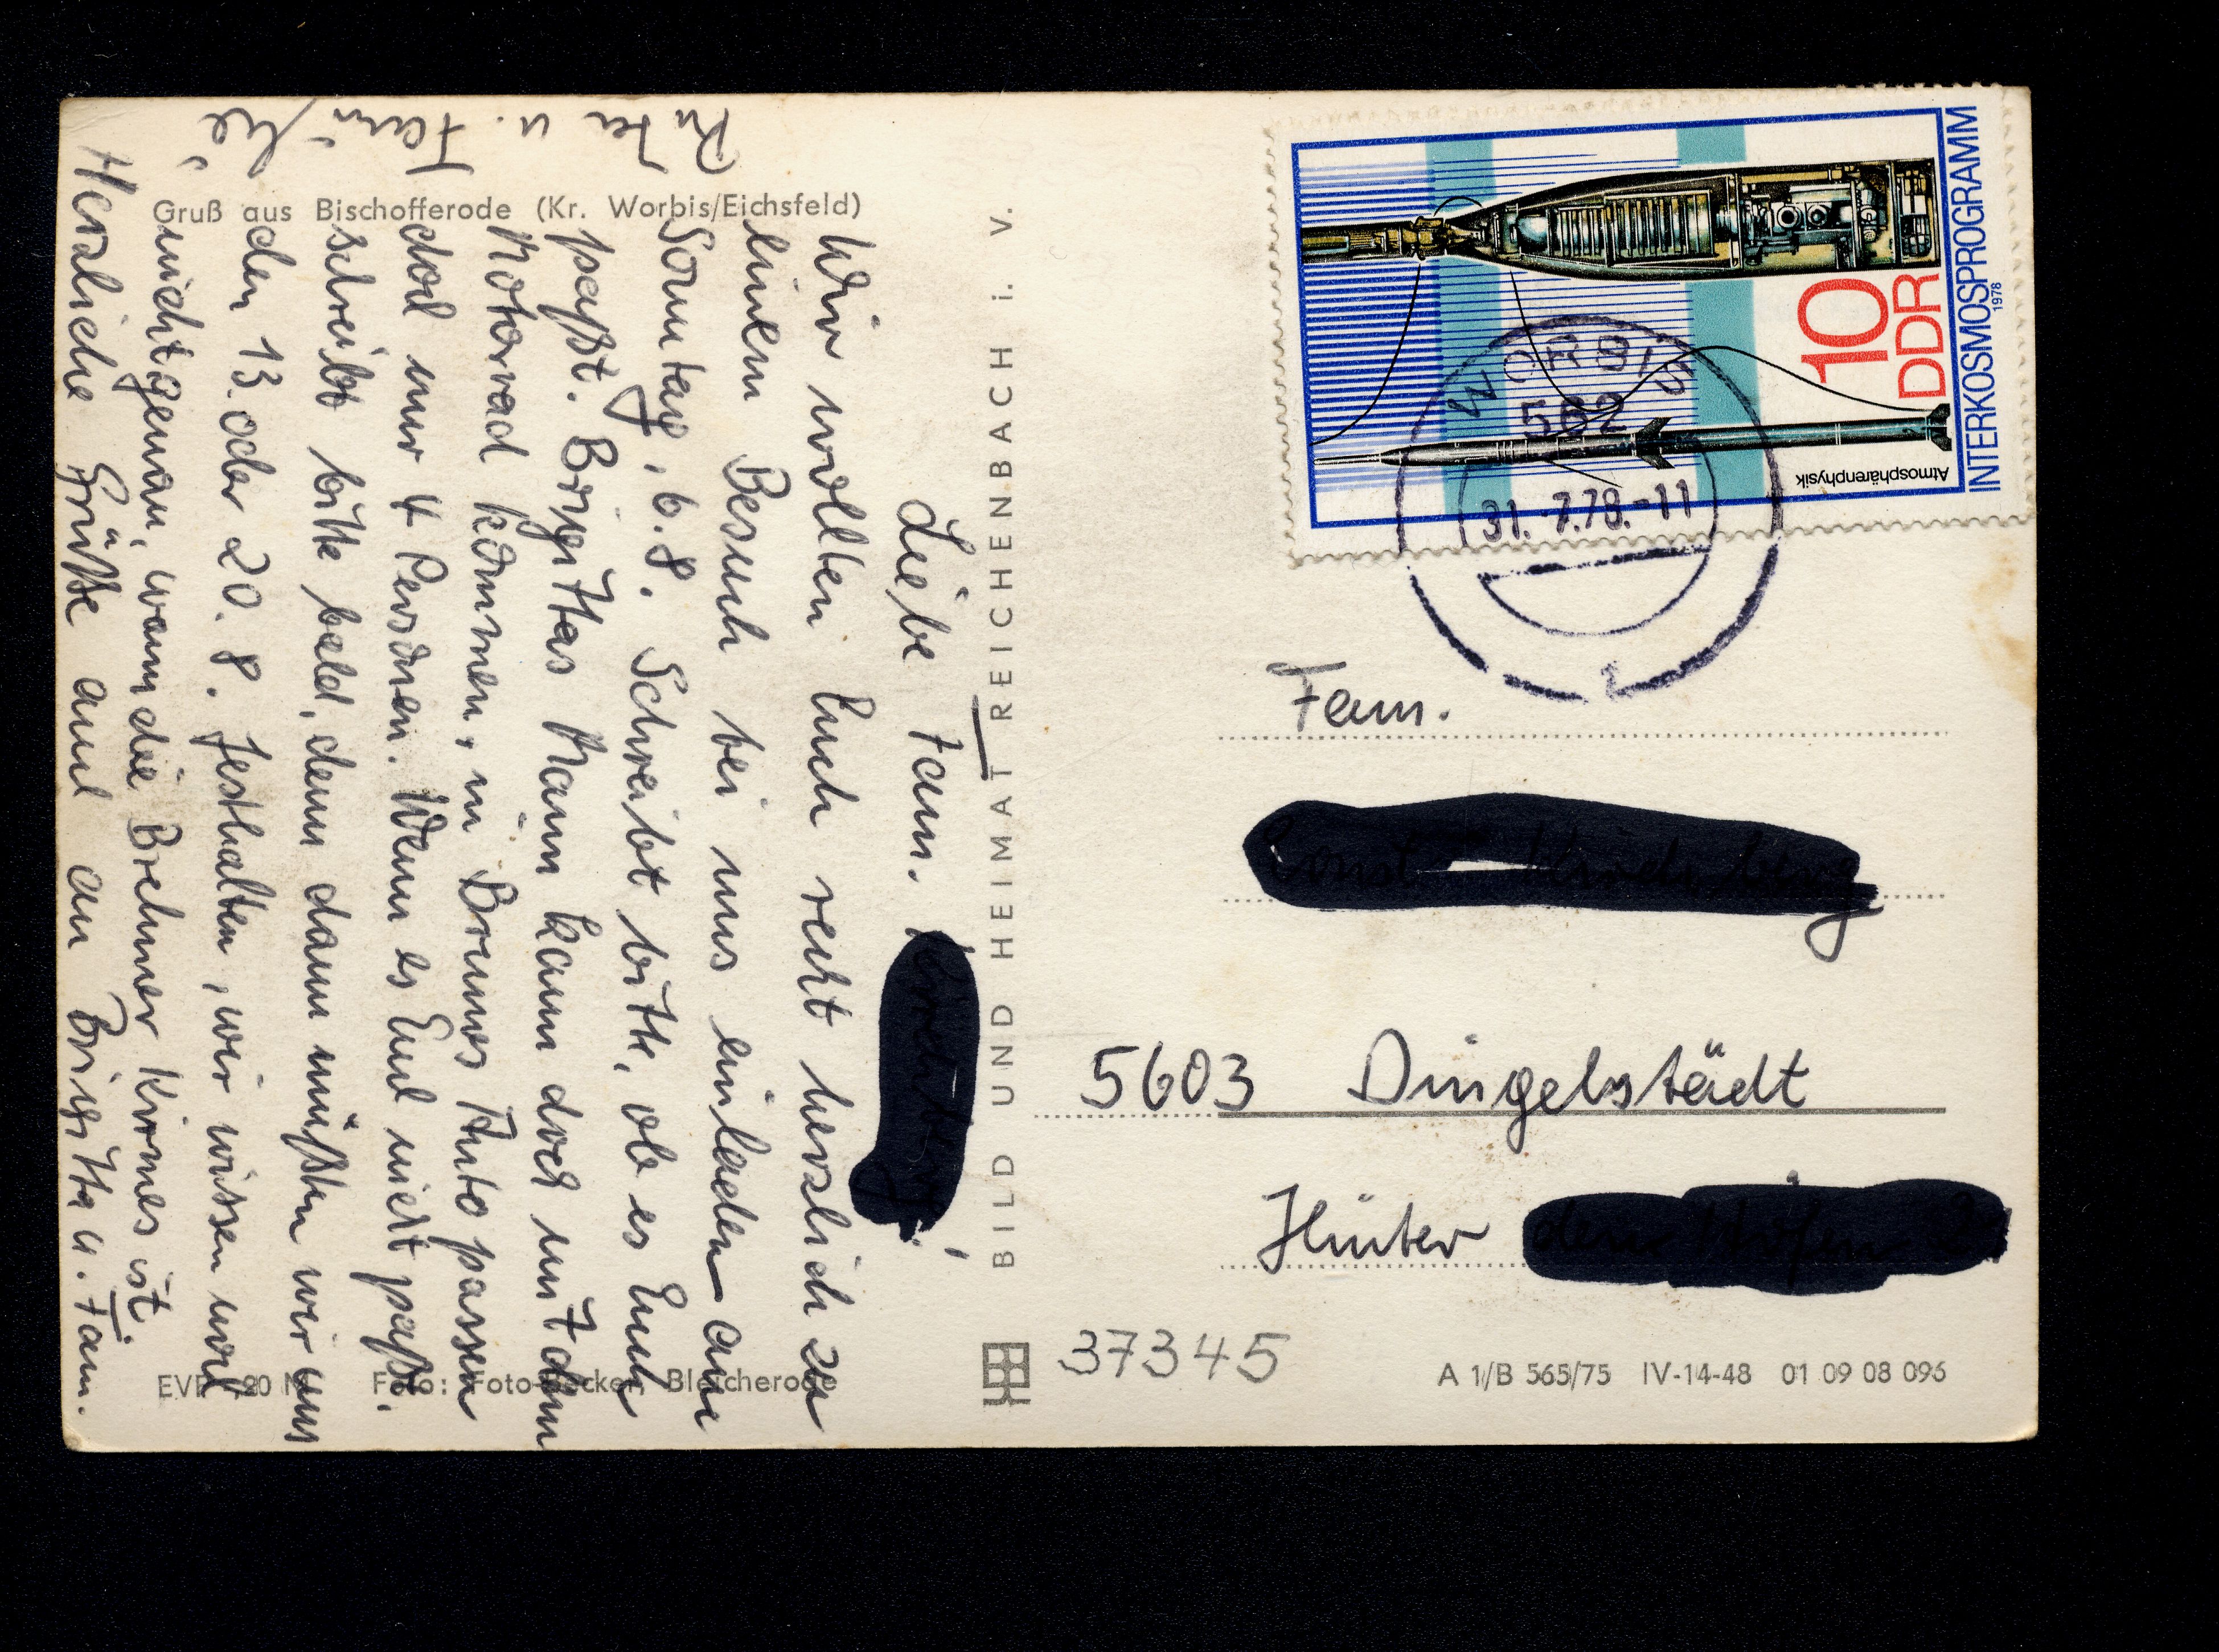 Gruß aus Bischofferode (Kr. Worbis/Eichsfeld)
Liebe Fam.
Wir wollten Euch recht herzlich zu
einem Besuch bei uns einladen am
Sonntag, 6. 8. Schreibt bitte, ob es Euch
paßt. Brigittas Mann kann doch mit dem
Motorrad kommen, in Brunos Auto passen
doch nur 4 Personen. Wenn es Euch nicht paßt,
schreibt bitte bald, denn dann müßten wir uns
den 13. oder 20. 8. festhalten, wir wissen noch
nicht genau, wann die Brehmer Kirmes ist.
Herzliche Grüße auch an Brigitta u. Fam.
Rita u. Familie
EVP
Foto: Foto-Becker, Bleicherode
BILD UND HEIMAT REICHENBACH i. V.
INTERKOSMOSPROGRAMM
1978
10
DDR
Atmosphärenphysik
WORBIS
562
31.-7.78.-11
Fam.
5603 Dingelstädt
Hinter
37345
A 1/B 565/75 IV-14-48 01 09 08 096